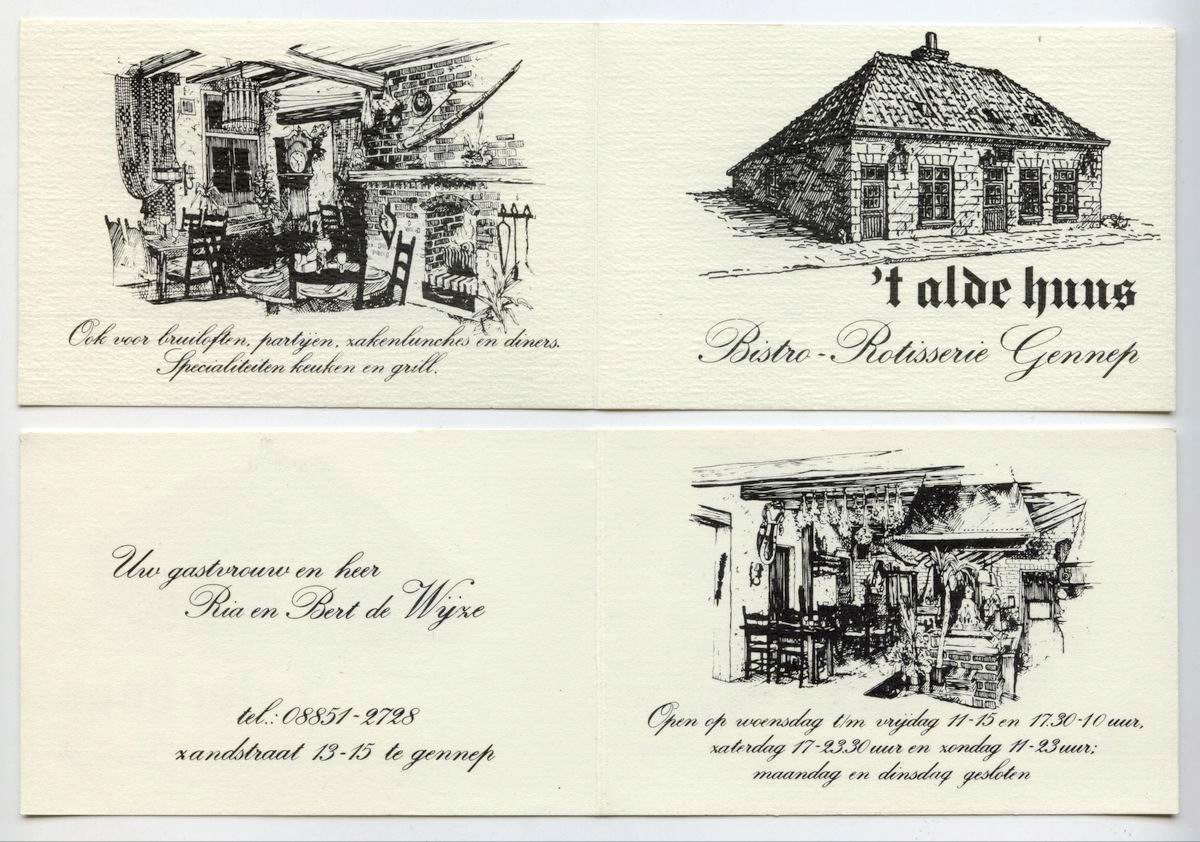 Ook voor bruiloften, partijen, zakenlunches en diners.
Specialiteiten keuken en grill.
't alde huus
Bistro-Rotisserie Gennep
Uw gastvrouw en heer
Ria en Bert de Wijze
tel.: 08851-2728
zandstraat 13-15 te gennep
Open op woensdag t/m vrijdag 11-15 en 17.30-10 uur,
zaterdag 17-23.30 uur en zondag 11-23 uur;
maandag en dinsdag gesloten